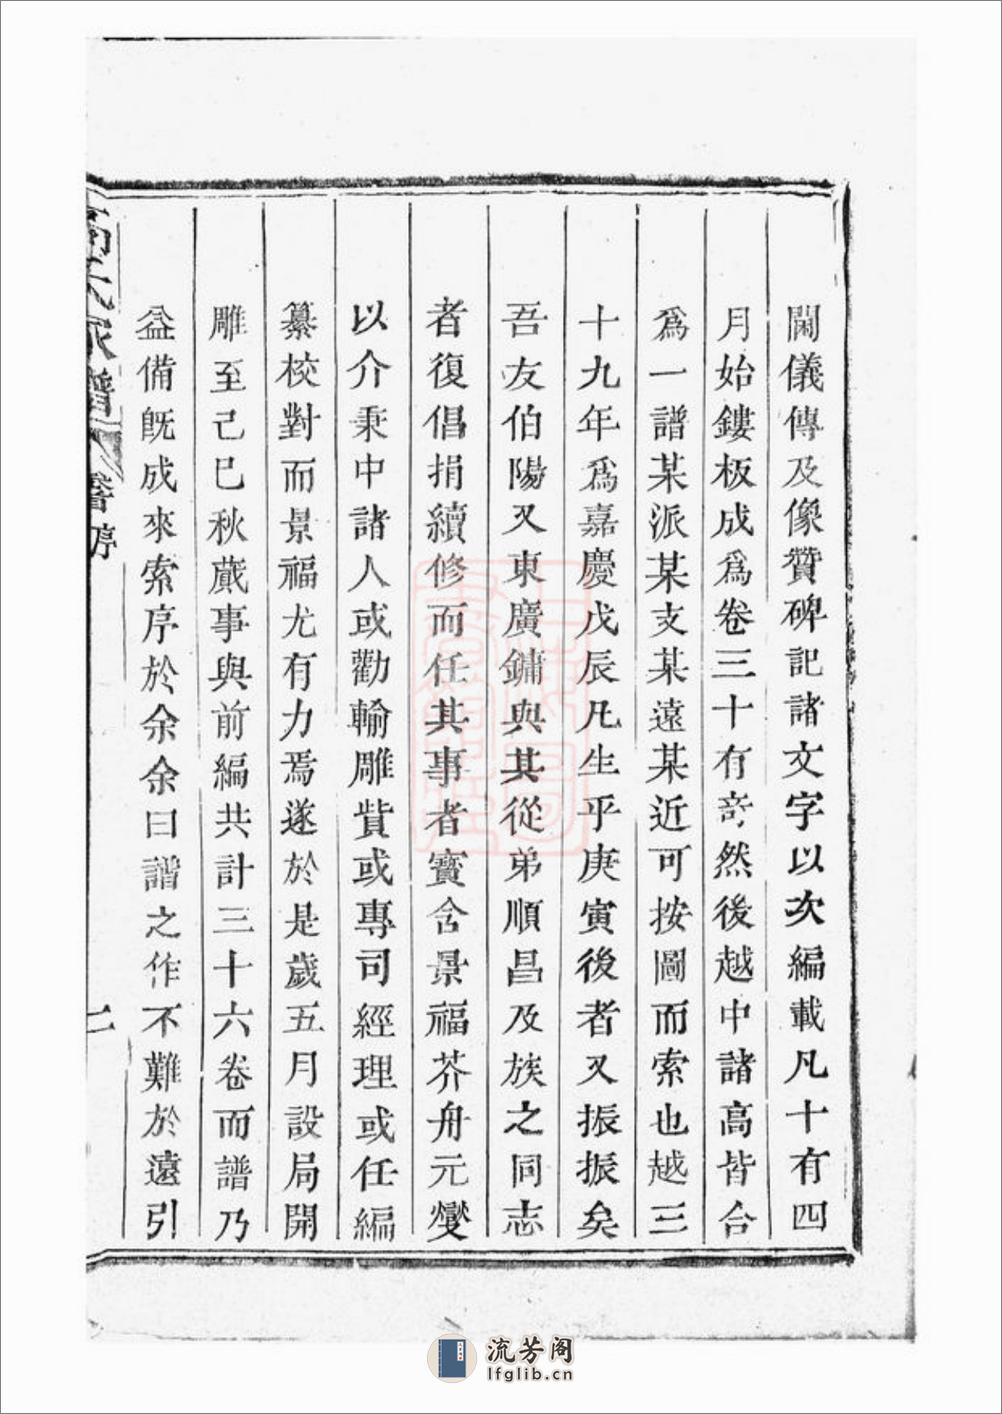 閫儀傳及像贊碑記諸文字以次編載凡十有四
月始鏤板成爲卷三十有竒然後越中諸高皆合
爲一譜某派某支某遠某近可按圖而索也越三
十九年爲嘉慶戊辰凡生乎庚寅後者又振振矣
吾友伯陽又東廣鏞與其從弟順昌及族之同志
者復倡捐續修而任其事者寳含景福芥舟元燮
以介秉中諸人或勸輸雕貲或專司經理或任編
纂校對而景福尤有力焉遂於是歲五月設局開
雕至己巳秋蕆事與前編共計三十六卷而譜乃
益備旣成來索序於余余曰譜之作不難於遠引
高氏家譜
序
二
流芳阁
lfglib.cn